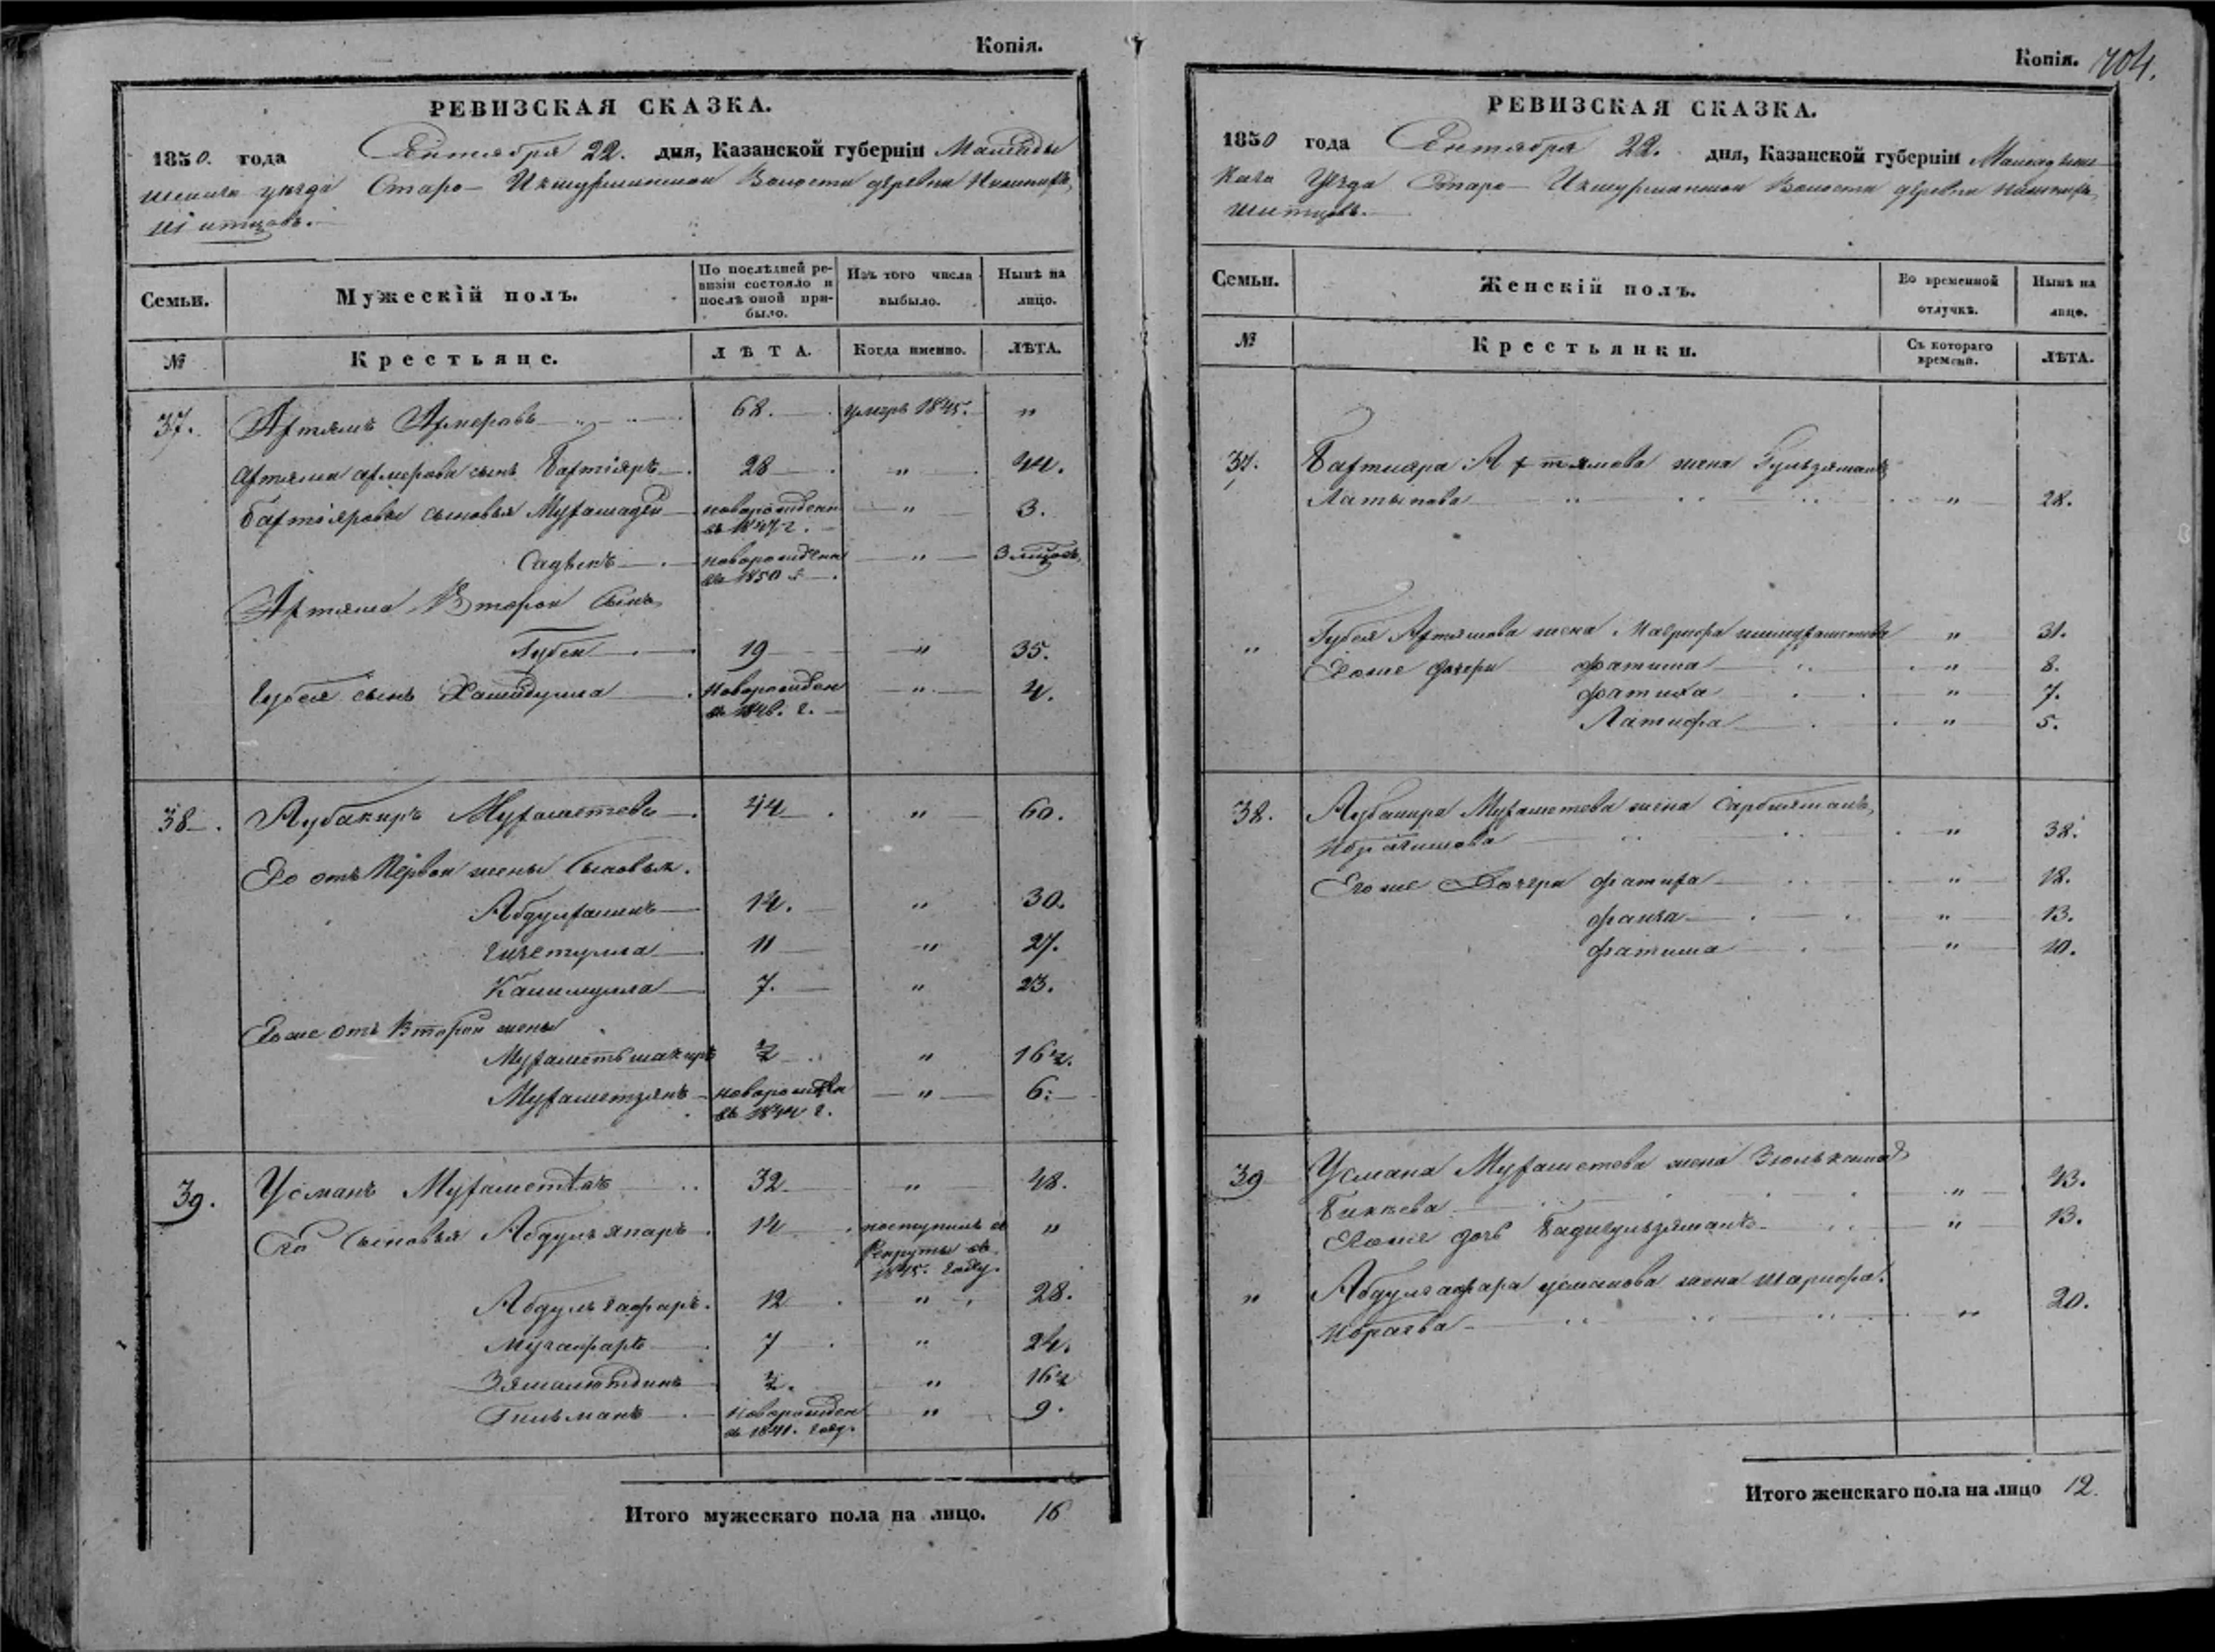 Копія.
РЕВИЗСКАЯ СКАЗКА.
1850. года Сентября 22. дня, Казанской губерніи Мамады
шскаго уѣзда Старо- Икшурминской Волости деревни
Семьи.
Мужескій полъ.
По послѣдней ре-
визіи состояло и
послѣ оной при-
было.
Изъ того числа
выбыло.
Нынѣ на
лицо.
№
Крестьяне.
ЛѢТА.
Когда именно.
ЛѢТА.
37. Ахтямъ Амеровъ 68. умеръ 1845. "
Ахтяма сынъ Бахтіяръ 28 " 44.
Бахтіяровы сыновья новорожденн " 3.
въ 1847 г.
Садыкъ новорожденн " 3 мѣсяц.
въ 1850 г.
Ахтяма Второй Сынъ
Губей 19 " 35.
Губея сынъ Хамидулла Новорожден " 4.
въ 1846. г.
38. Аубакиръ Мухаметевъ 44 " 60.
Его отъ Первой жены Сыновья.
Абдулхаликъ 14. " 30.
11 " 27.
Калимулла 7. " 23.
Его же отъ Второй жены
Мухаметьшакиръ ½ " 16½.
Мухаметзянъ новорожден " 6.
въ 1844 г.
39. Усманъ Мухаметевъ 32 " 48.
Его Сыновья Абдулъяпаръ 14 поступилъ въ "
Рекруты въ
1845. году.
Абдулъгафаръ. 12 " 28.
Мугафаръ 7 " 24.
Зямалютдинъ ½. " 16½
Гильманъ Новорожден " 9.
въ 1841. году.
Итого мужескаго пола на лицо. 16
Копія. 704.
РЕВИЗСКАЯ СКАЗКА.
1850 года Сентября 22. дня, Казанской губерніи Мамадыш
скаго Уѣзда Старо- Икшурминской Волости деревни
Семьи.
Женскій полъ.
Во временной
отлучкѣ.
Нынѣ на
лицо.
№
Крестьянки.
Съ котораго
времени.
ЛѢТА.
37. Бахтіяра Ахтямова жена Гульзяманъ
Латыпова " 28.
" Губея Ахтямова жена Мавриѳа " 31.
Его же дочери Фатима " 8.
Фатиха " 7.
Латифа " 5.
38. Аубакира Мухаметева жена Сарбизяманъ
Ибрагимова " 38.
Его же Дочери Фатиха " 18.
Фаиза " 13.
Фатима " 10.
39 Усмана Мухаметева жена
Биккева " 43.
Его же дочь Бадигульзяманъ " 13.
" Абдулгафара Усманова жена Шарифа.
Ибраева " 20.
Итого женскаго пола на лицо 12.